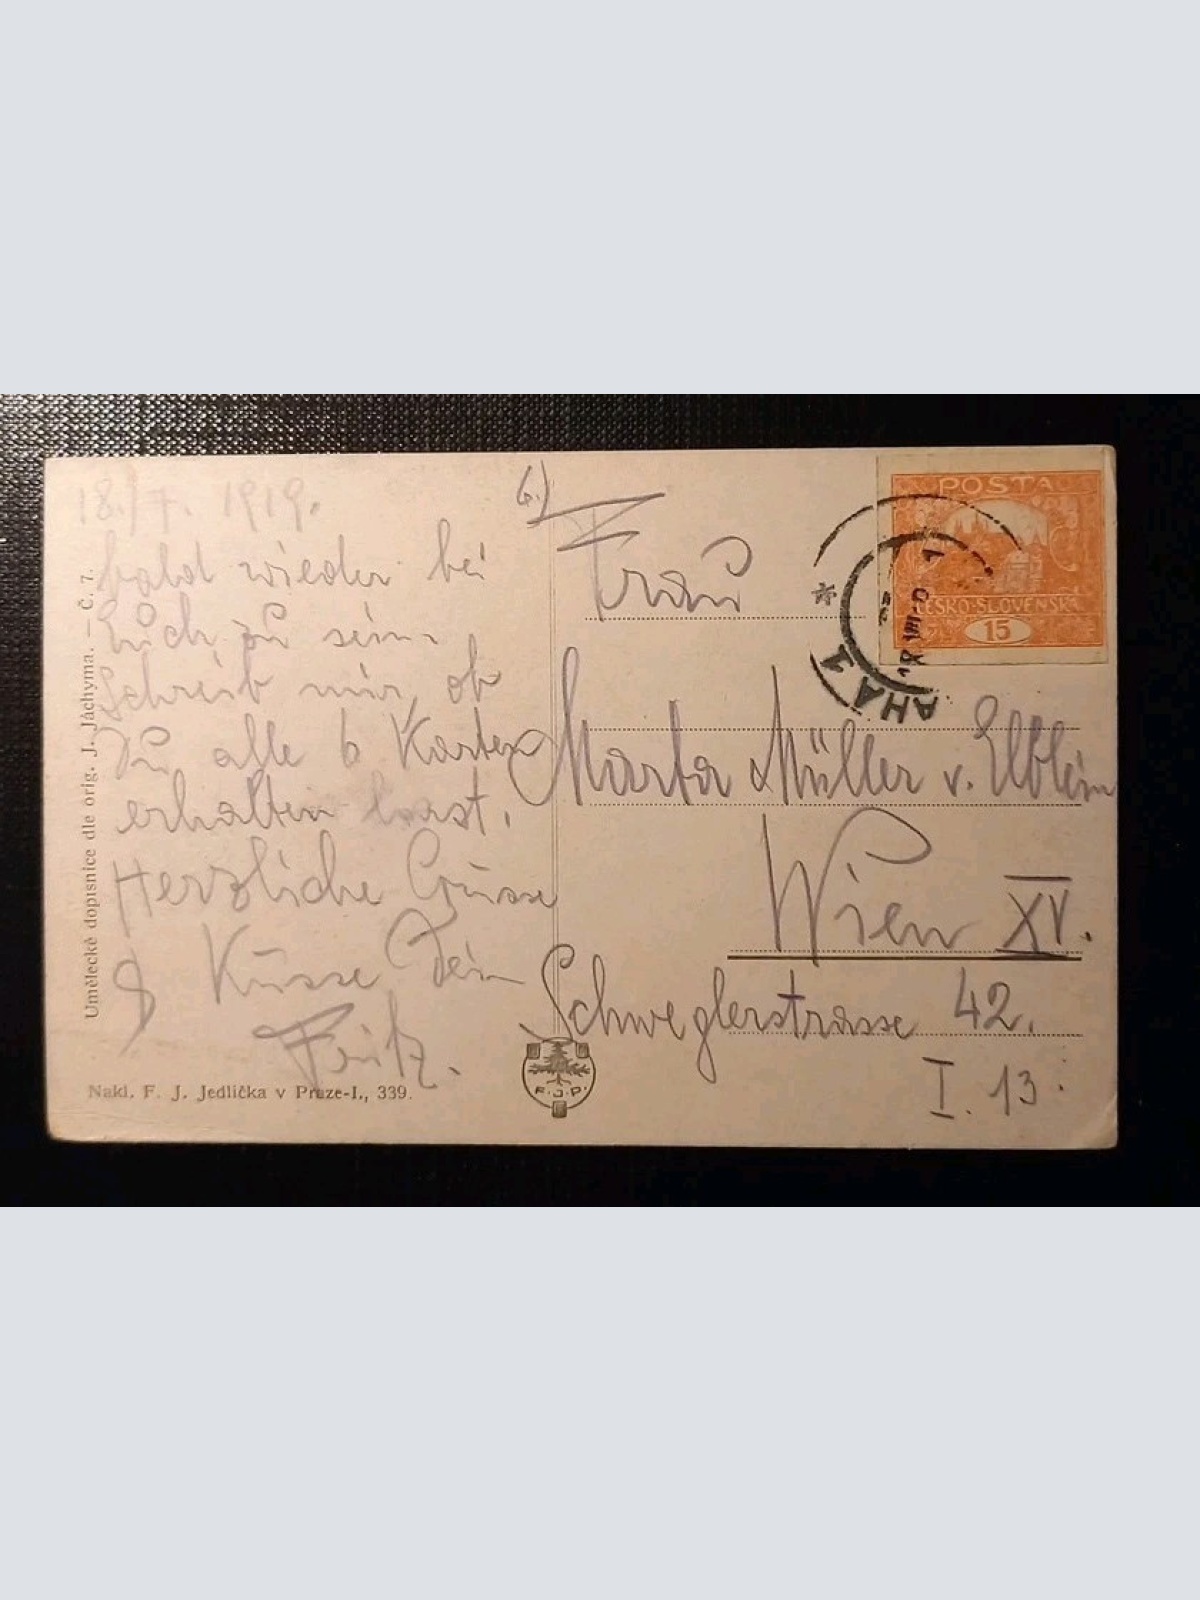 18./7. 1919.
bald wieder bei
Euch zu sein.
Schreib mir, ob
Du alle 6 Karten
erhalten hast.
Herzliche Grüsse
& Küsse Dein
Fritz.
Umělecké dopisnice dle orig. J. Jáchyma. — Č. 7.
Nakl. F. J. Jedlička v Praze-I., 339.
6.)
Frau
Marta Müller v.
Wien XV.
Schweglerstrasse 42.
I. 13.
POSTA
ČESKO-SLOVENSKÁ
15
AHA 1
F. J. P.